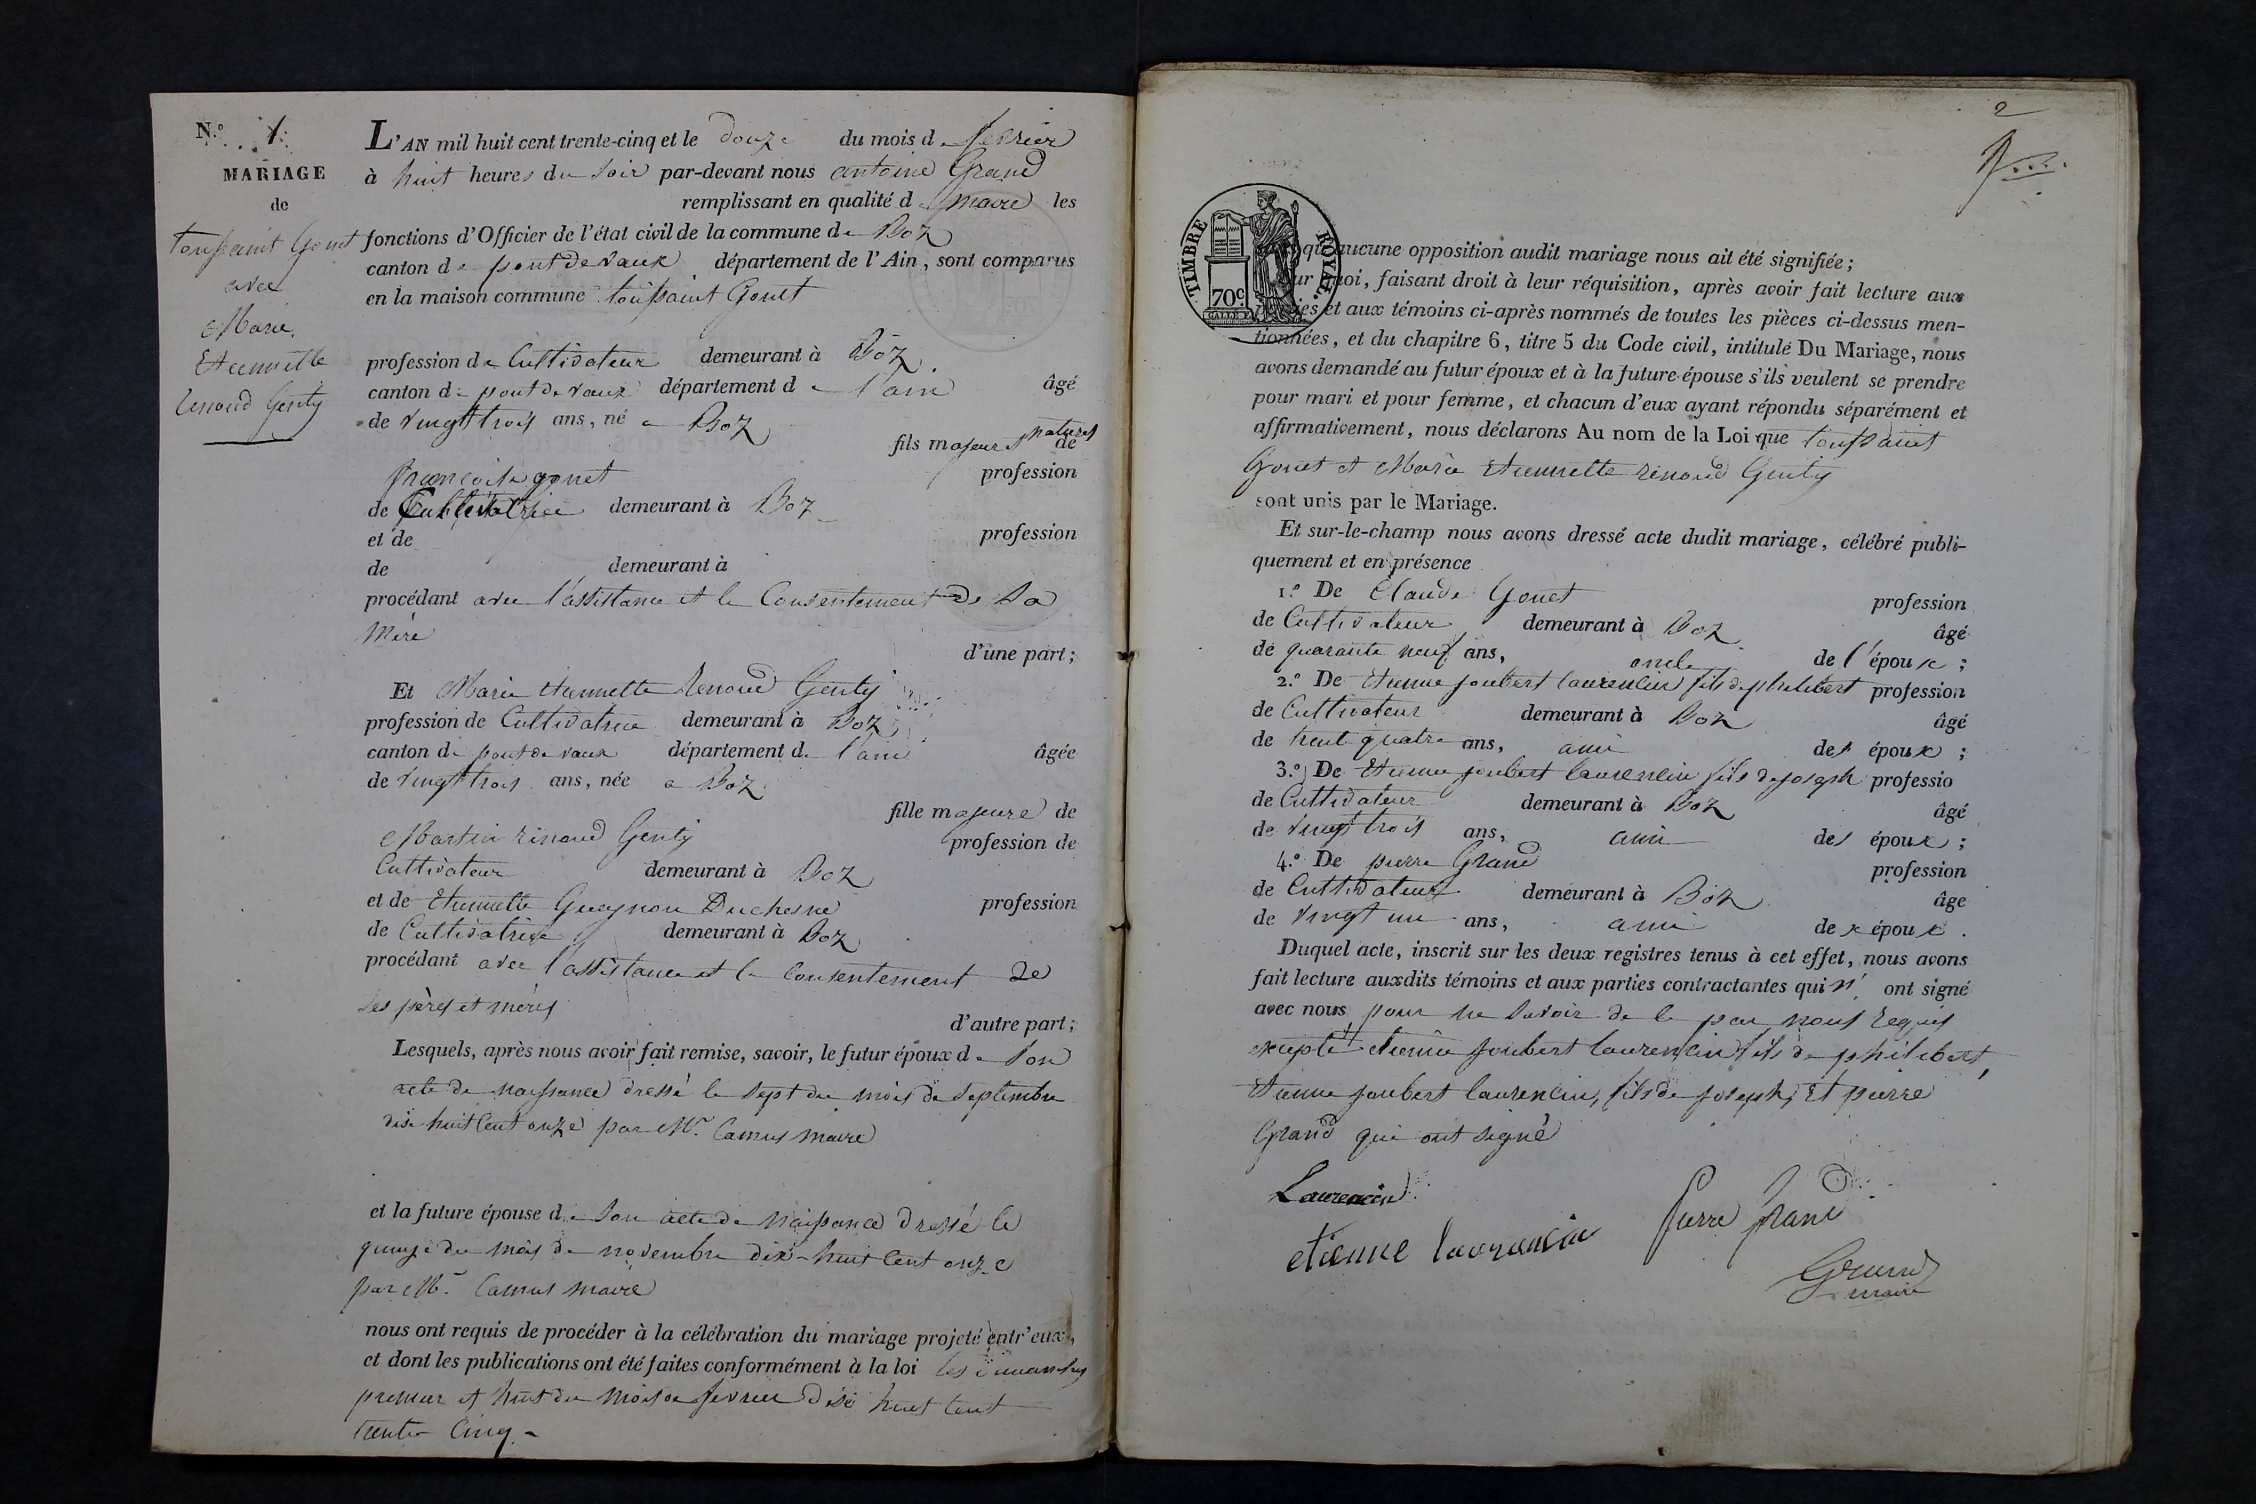 N.º 1.
MARIAGE
de
toussaint Gonet
avec
Marie
Etiennette
renoud Genty
L'AN mil huit cent trente-cinq et le douze du mois de fevrier
à huit heures du soir par-devant nous antoine Grand
remplissant en qualité de maire les
fonctions d'Officier de l'état civil de la commune de Boz
canton de pont de vaux département de l'Ain, sont comparus
en la maison commune toussaint Gonet
profession de Cultivateur demeurant à Boz
canton de pont de vaux département de l'ain âgé
de vingt trois ans, né a Boz
fils majeur et naturel de
françoise gonet profession
de Cultivatrice demeurant à Boz
et de profession
de demeurant à
procédant avec l'assistance et le Consentement de Sa
mère
d'une part;
Et Marie etiennette Renoud Genty
profession de Cultivatrice demeurant à Boz
canton de pont de vaux département de l'ain âgée
de vingt trois ans, née a Boz
fille majeure de
Martin renoud Genty profession de
Cultivateur demeurant à Boz
et de etiennette Gueynon Duchesne profession
de Cultivatrice demeurant à Boz
procédant avec l'assistance et le consentement de
ses pères et mères
d'autre part;
Lesquels, après nous avoir fait remise, savoir, le futur époux de son
acte de naissance dressé le sept du mois de septembre
dix huit Cent onze par Mr. Camus maire
et la future épouse de son acte de naissance dressé le
quinze du mois de novembre dix-huit Cent onze
par Mr. Camus maire
nous ont requis de procéder à la célébration du mariage projeté entr'eux,
et dont les publications ont été faites conformément à la loi les dimanches
premier et huit du mois de fevrier dix huit Cent
trente Cinq.
2
TIMBRE ROYAL
70c.
aucune opposition audit mariage nous ait été signifiée;
faisant droit à leur réquisition, après avoir fait lecture aux
et aux témoins ci-après nommés de toutes les pièces ci-dessus men-
tionnées, et du chapitre 6, titre 5 du Code civil, intitulé Du Mariage, nous
avons demandé au futur époux et à la future épouse s'ils veulent se prendre
pour mari et pour femme, et chacun d'eux ayant répondu séparément et
affirmativement, nous déclarons Au nom de la Loi que toussaint
Gonet et Marie etiennette renoud Genty
sont unis par le Mariage.
Et sur-le-champ nous avons dressé acte dudit mariage, célébré publi-
quement et en présence
1.º De Claude Gonet profession
de Cultivateur demeurant à Boz âgé
de quarante neuf ans, oncle de l'époux;
2.º De etienne joubert laurencin fils de philibert profession
de Cultivateur demeurant à Boz âgé
de trente quatre ans, ami des époux;
3.º De Etienne joubert laurencin fils de joseph professio
de Cultivateur demeurant à Boz âgé
de vingt trois ans, ami des époux;
4.º De pierre Grand profession
de Cultivateur demeurant à Boz âge
de vingt un ans, ami des époux.
Duquel acte, inscrit sur les deux registres tenus à cet effet, nous avons
fait lecture auxdits témoins et aux parties contractantes qui n' ont signé
avec nous pour ne savoir de ce par nous requis
excepté etienne joubert laurencin fils de philibert,
etienne joubert laurencin, fils de joseph, et pierre
Grand qui ont signé
Laurencin
etienne laurancin
Pierre grand
Grand
maire